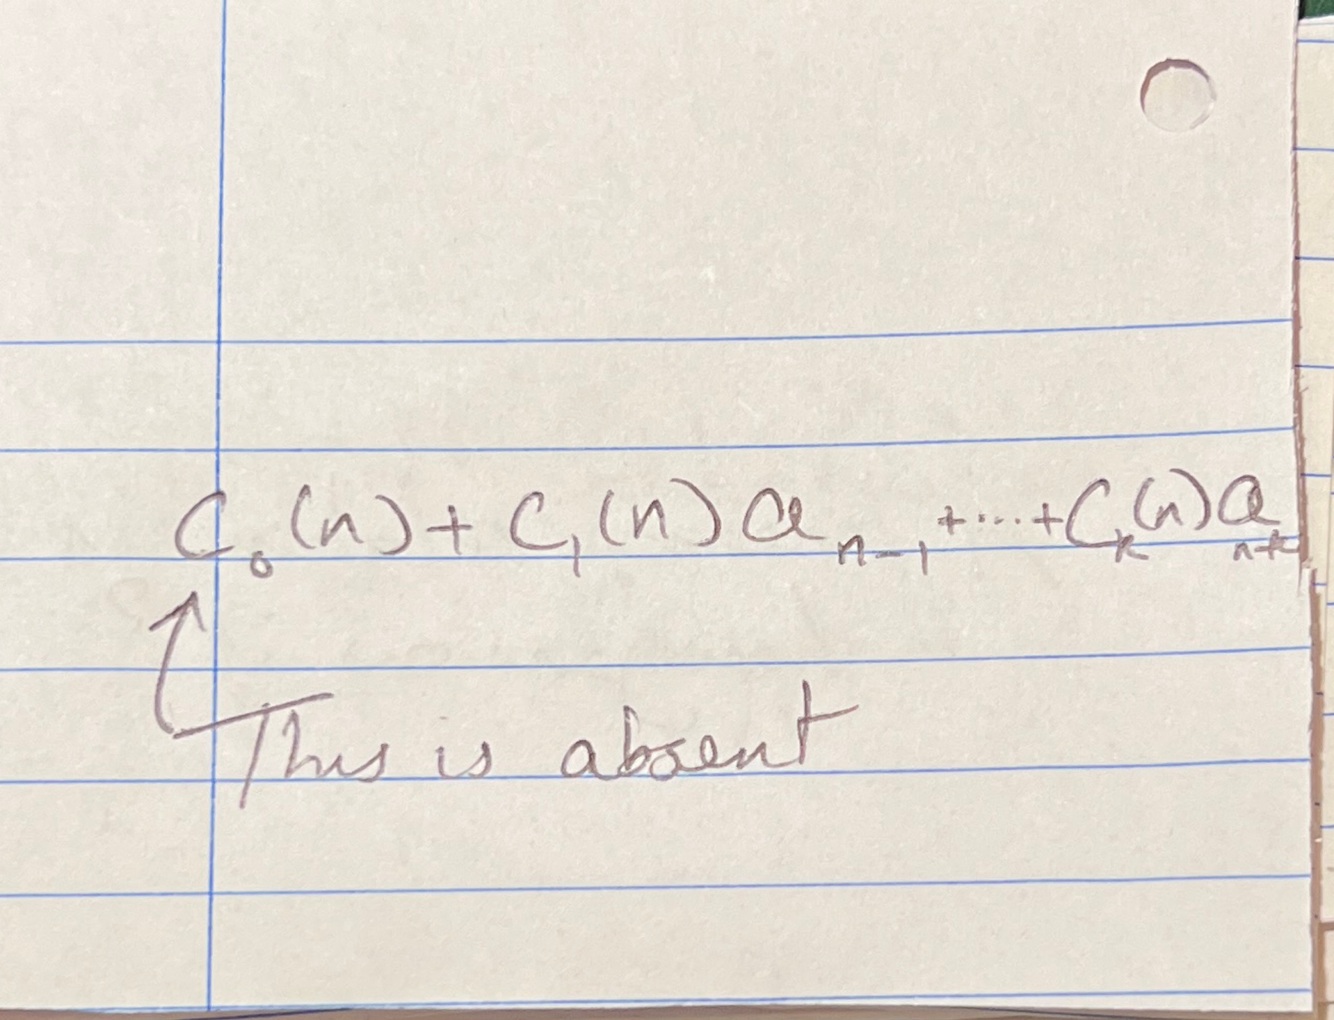 C₀(n) + C₁(n) aₙ₋₁ + ... + Cₖ(n) aₙ₋ₖ
This is absent